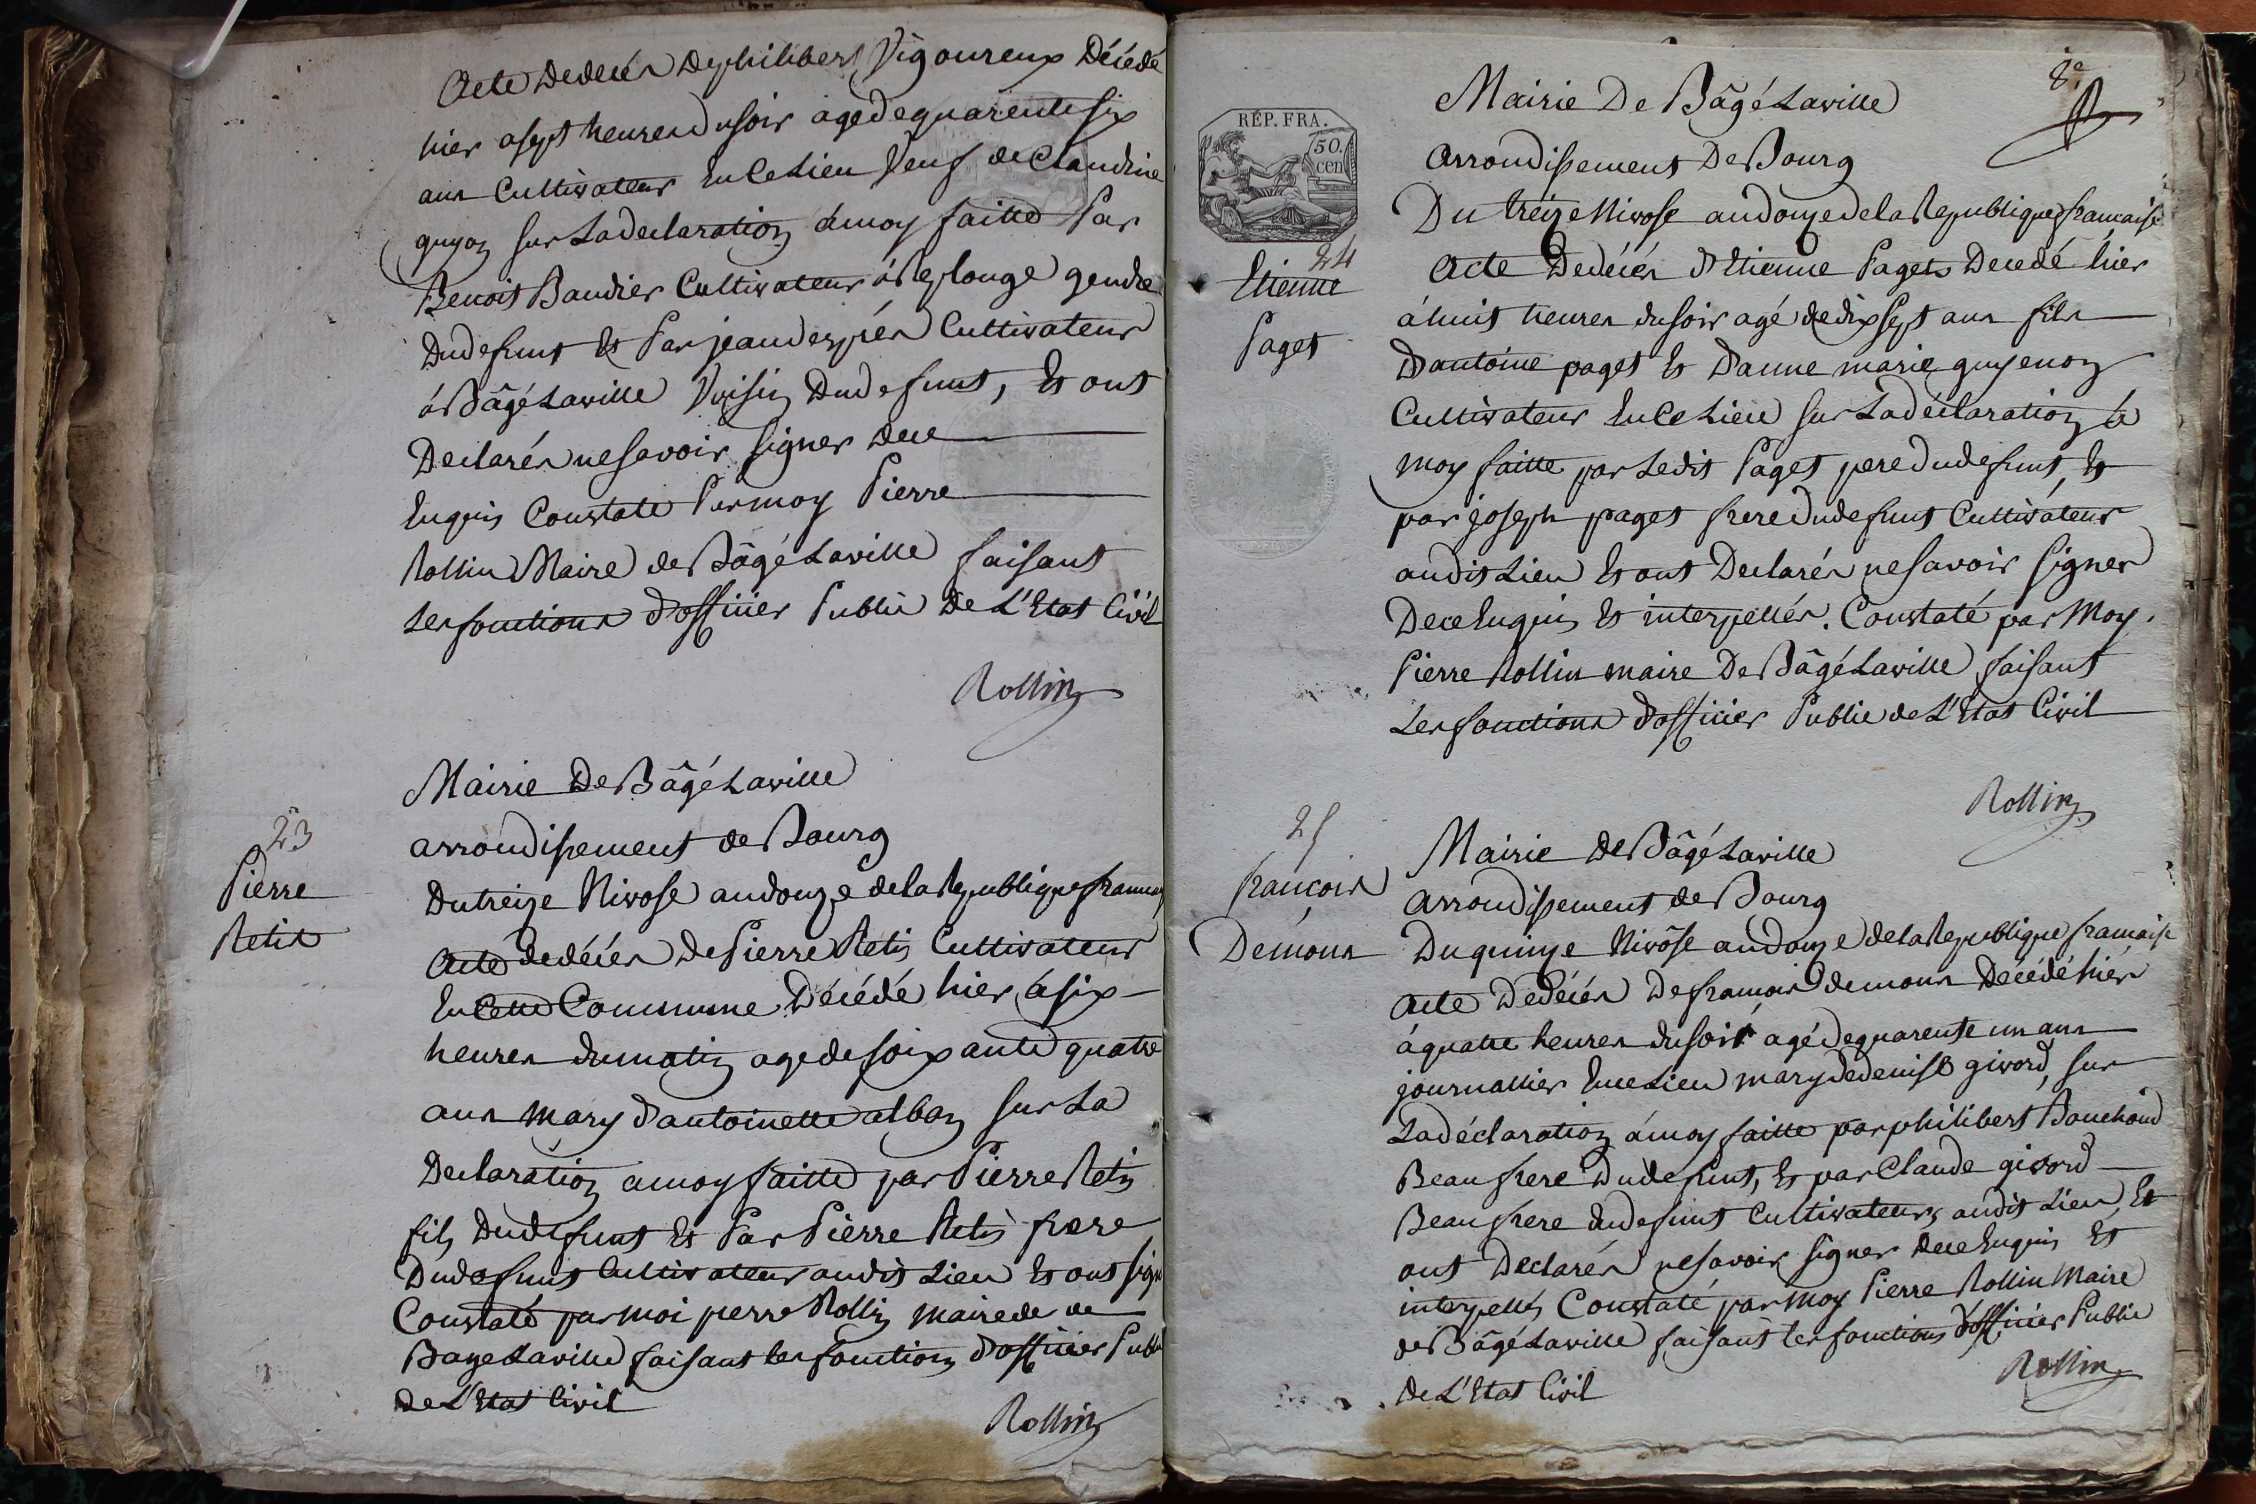 Acte De decés De philibert Vigoureux Décédé
hier a sept heures du soir agé de quarente six
ans Cultivateur En Ce Lieu Veuf de Claudine
guyon sur La declaration à moy faitte Par
Benoit Baudier Cultivateur à Replonge gendre
Du defunt Et Par jean després Cultivateur
à Bâgé Laville Voisin Du defunt, Et ont
Declarés ne savoir signer de ce
Enquis Constaté Par moy Pierre
Rollin Maire de Bâgé Laville faisant
Les fonctions d'officier Public De L'Etat Civil
Rollin
Mairie De Bâgé Laville
arrondissement de Bourg
23
Pierre
Retis
Du treize Nivose an douze de la Republique francaise
Acte de décés De Pierre Retis Cultivateur
En Cette Commune Décédé hier à six
heures du matin agé de soixante quatre
ans mary d'antoinette alban sur La
Declaration a moy faitte par Pierre Retis
fils Du defunt Et Par Pierre Retis frere
Du defunt Cultivateur audit Lieu Et ont signé
Constaté par moi pierre Rollin maire de de
Bage Laville faisant les fonctions d'officier Public
de L'Etat Civil
Rollin
8e
RÉP. FRA.
50.
cen
Mairie De Bâgé Laville
arrondissement De Bourg
Du treize Nivose an douze de la Republique francaise
24
Etienne
Paget
Acte De décés d'Etienne Paget Decedé hier
à huit heures du soir agé de dix sept ans fils
D'antoine paget Et D'anne marie guyenon
Cultivateur En Ce Lieu sur La déclaration à
moy faitte par Ledit Paget pere du defunt, Et
par joseph paget frere du defunt Cultivateur
audit Lieu Et ont Declarés ne savoir signer
De ce Enquis Et interpellés. Constaté par Moy
Pierre Rollin maire De Bâgé Laville faisant
Les fonctions d'officier Public de L'Etat Civil
Rollin
25
francois
Demons
Mairie de Bâgé Laville
arrondissement de Bourg
Du quinze Nivôse an douze de la Republique francaise
Acte De décés De francois demons Décédé hier
à quatre heures du soir agé de quarente un ans
journallier En ce Lieu mary de denise givord, sur
La déclaration à moy faitte par philibert Bouchoud
Beau frere Du defunt, Et par Claude givord
Beau frere du defunt Cultivateurs audit Lieu, Et
ont Declarés ne savoir signer De ce Enquis Et
interpellés Constaté par moy Pierre Rollin Maire
de Bâgé Laville faisant les fonctions d'officier Public
De L'Etat Civil
Rollin